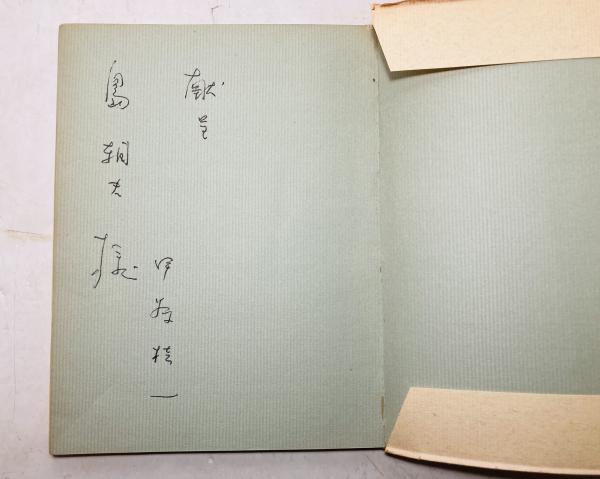 献呈
伊藤桂一
島朝夫様